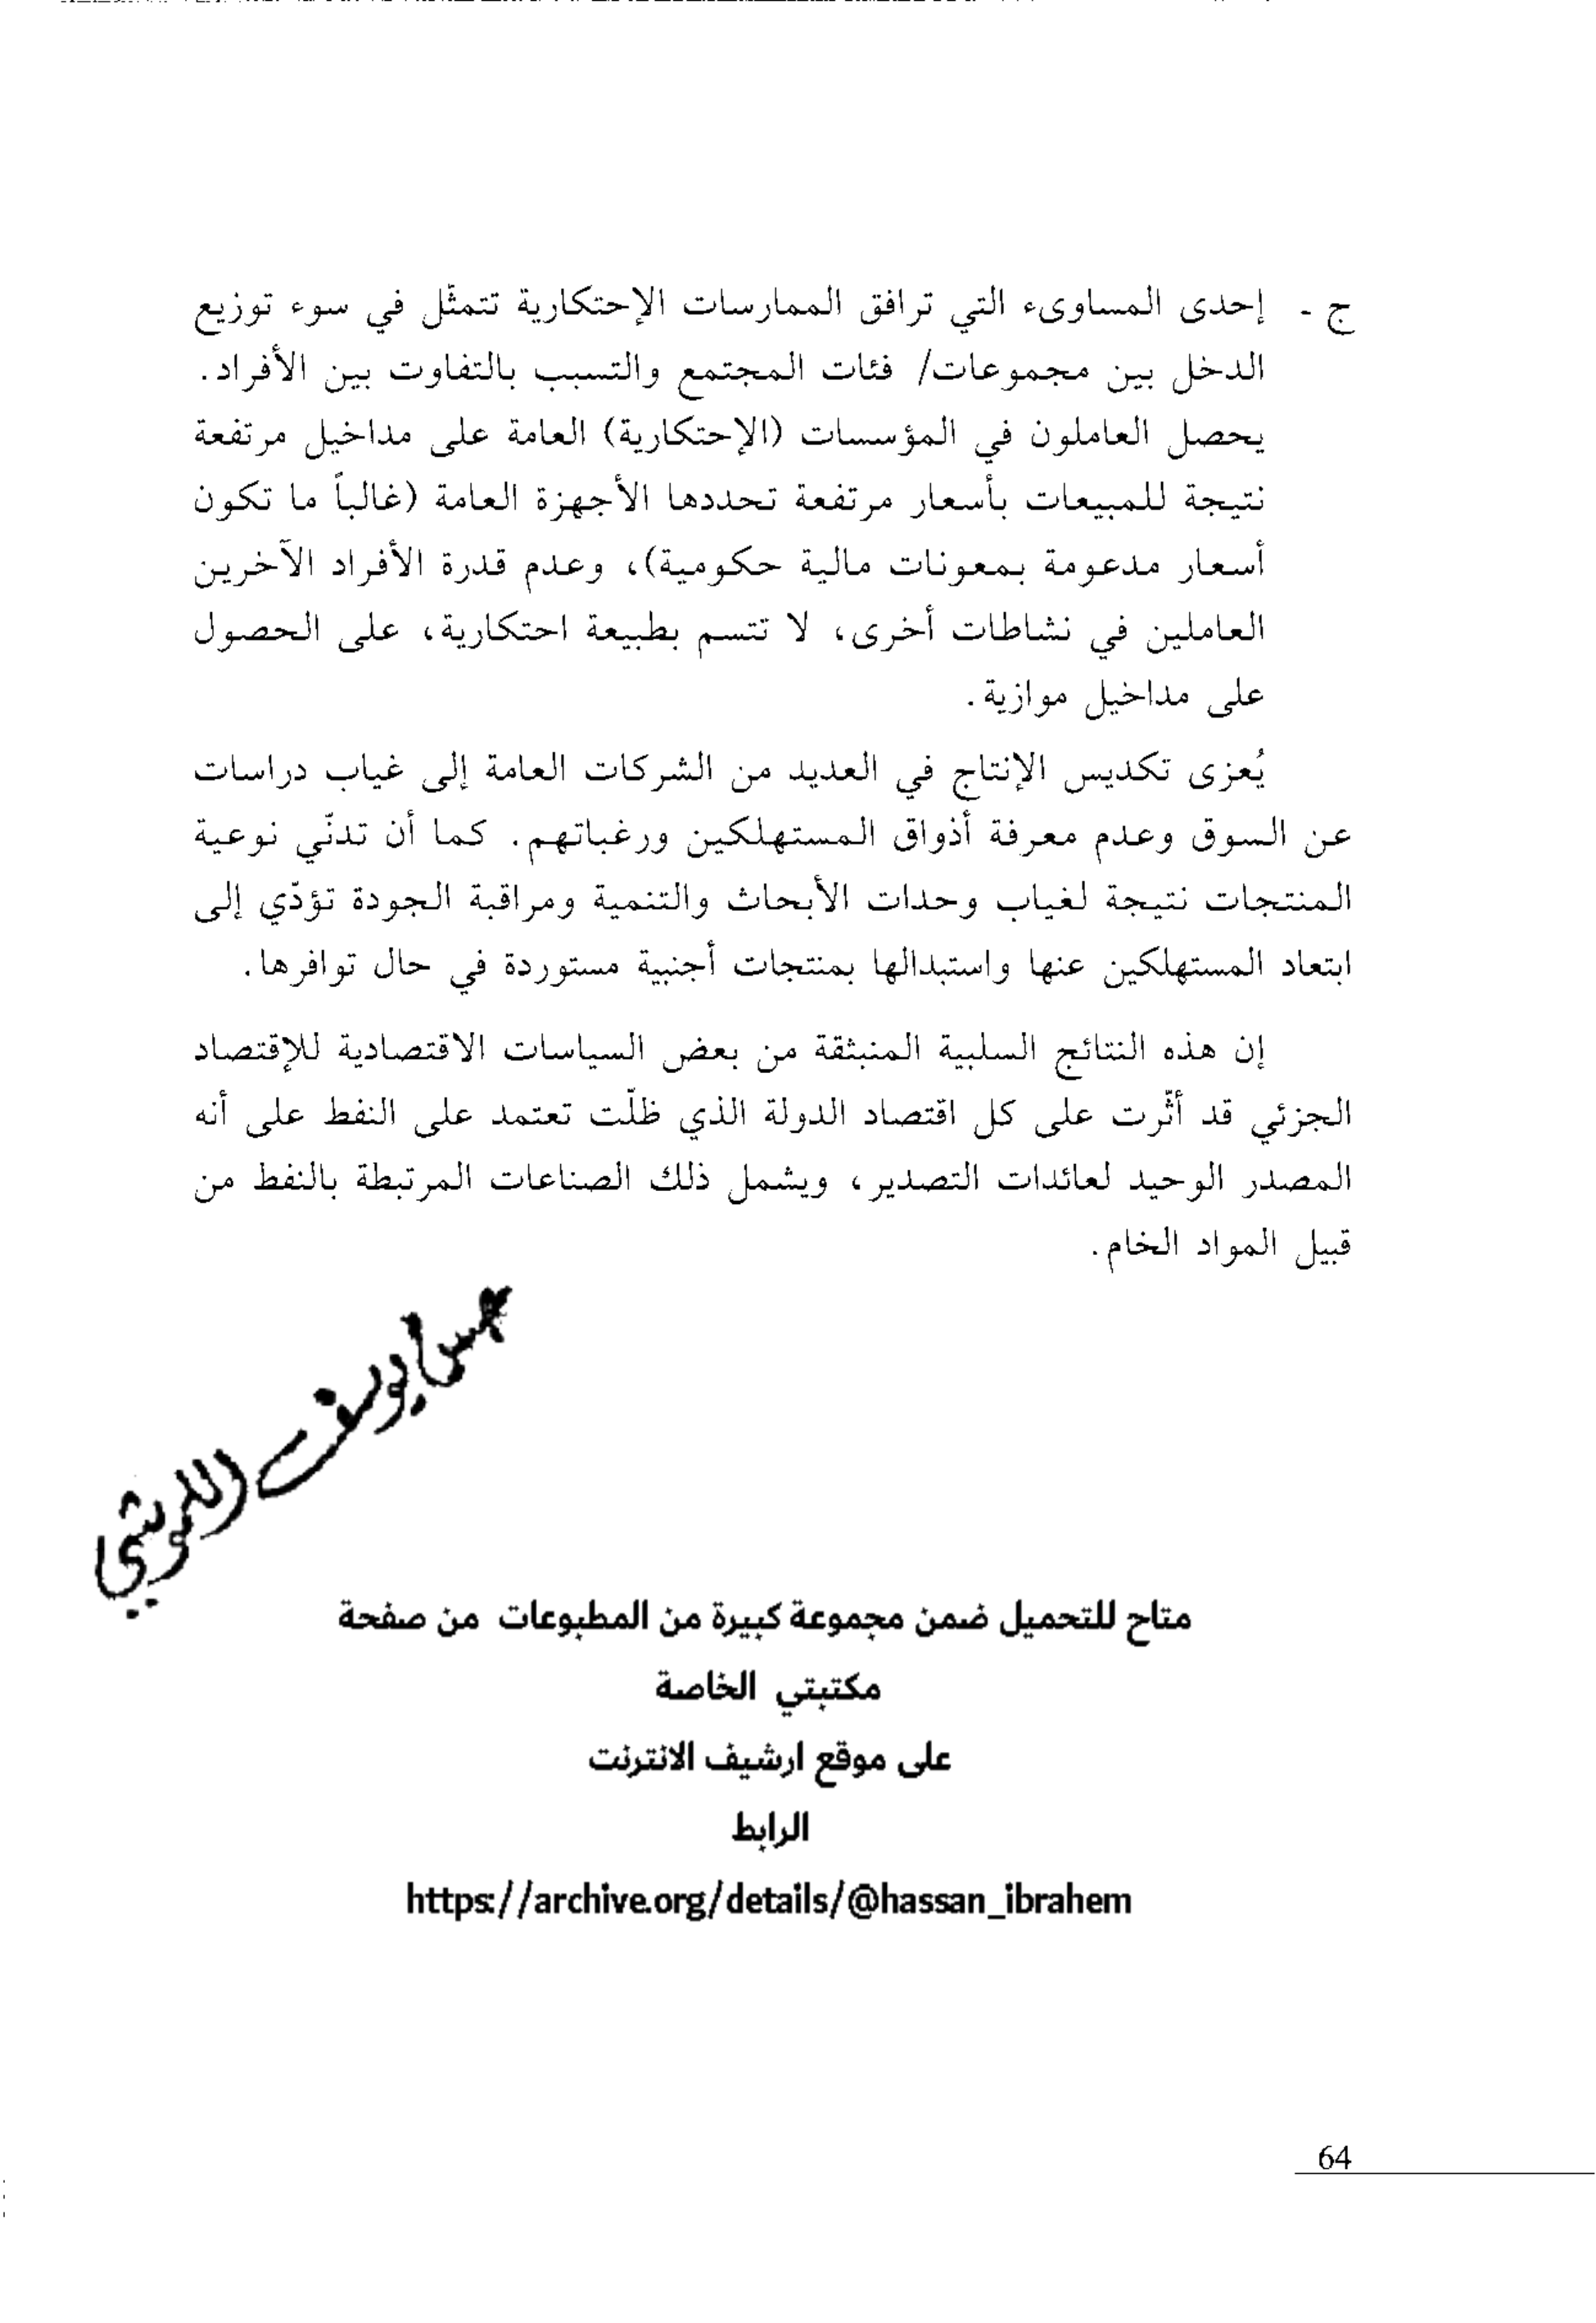 ج - إحدى المساوىء التي ترافق الممارسات الإحتكارية تتمثّل في سوء توزيع
الدخل بين مجموعات/ فئات المجتمع والتسبب بالتفاوت بين الأفراد.
يحصل العاملون في المؤسسات (الإحتكارية) العامة على مداخيل مرتفعة
نتيجة للمبيعات بأسعار مرتفعة تحددها الأجهزة العامة (غالباً ما تكون
أسعار مدعومة بمعونات مالية حكومية)، وعدم قدرة الأفراد الآخرين
العاملين في نشاطات أخرى، لا تتسم بطبيعة احتكارية، على الحصول
على مداخيل موازية.
يُعزى تكديس الإنتاج في العديد من الشركات العامة إلى غياب دراسات
عن السوق وعدم معرفة أذواق المستهلكين ورغباتهم. كما أن تدنّي نوعية
المنتجات نتيجة لغياب وحدات الأبحاث والتنمية ومراقبة الجودة تؤدّي إلى
ابتعاد المستهلكين عنها واستبدالها بمنتجات أجنبية مستوردة في حال توافرها.
إن هذه النتائج السلبية المنبثقة من بعض السياسات الاقتصادية للإقتصاد
الجزئي قد أثّرت على كل اقتصاد الدولة الذي ظلّت تعتمد على النفط على أنه
المصدر الوحيد لعائدات التصدير، ويشمل ذلك الصناعات المرتبطة بالنفط من
قبيل المواد الخام.
يوسف
متاح للتحميل ضمن مجموعة كبيرة من المطبوعات من صفحة
مكتبتي الخاصة
على موقع ارشيف الانترنت
الرابط
https://archive.org/details/@hassan_ibrahem
64